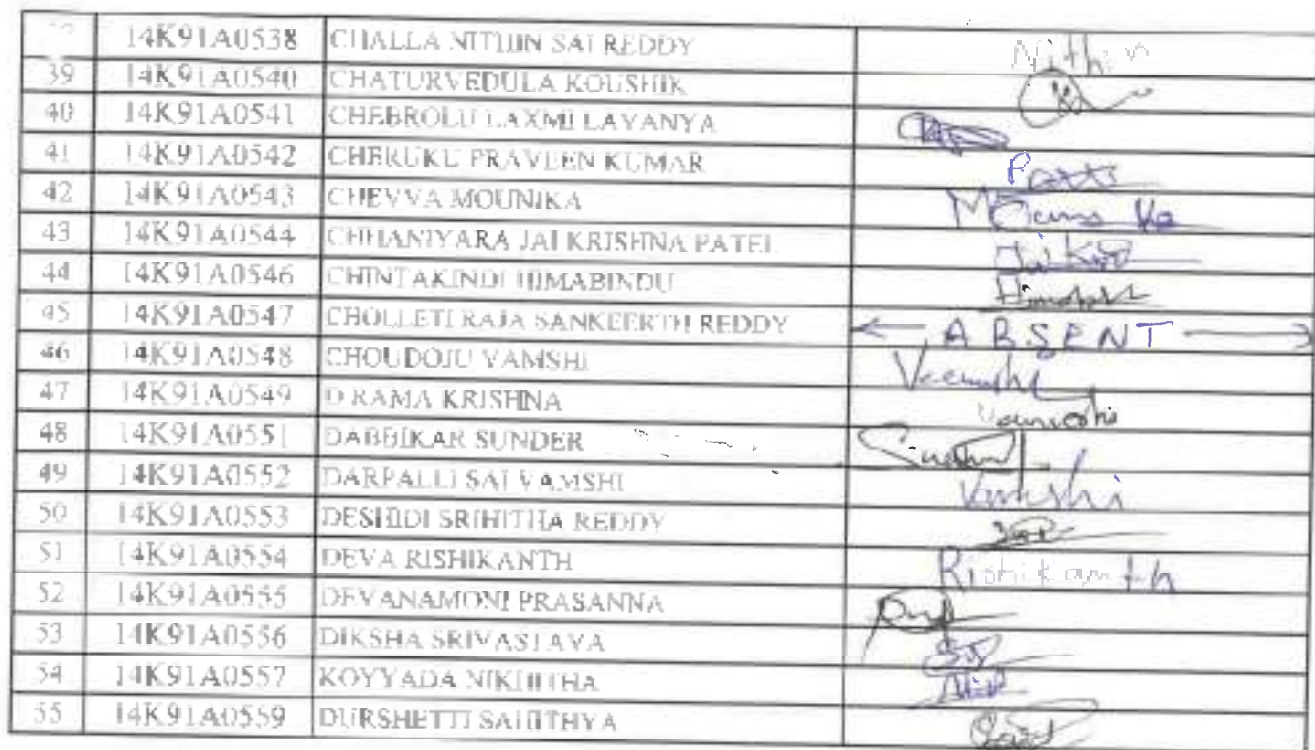 14K91A0538 CHALLA NITHIN SAI REDDY Nithin
39 14K91A0540 CHATURVEDULA KOUSHIK
40 14K91A0541 CHEBROLU LAXMI LAVANYA
41 14K91A0542 CHERUKU PRAVEEN KUMAR
42 14K91A0543 CHEVVA MOUNIKA
43 14K91A0544 CHHANIYARA JAI KRISHNA PATEL
44 14K91A0546 CHINTAKINDI HIMABINDU
45 14K91A0547 CHOLLETI RAJA SANKEERTH REDDY ABSENT
46 14K91A0548 CHOUDOJU VAMSHI
47 14K91A0549 D RAMA KRISHNA
48 14K91A0551 DABBIKAR SUNDER
49 14K91A0552 DARPALLI SAI VAMSHI Vamshi
50 14K91A0553 DESHIDI SRIHITHA REDDY
51 14K91A0554 DEVA RISHIKANTH Rishikanth
52 14K91A0555 DEVANAMONI PRASANNA
53 14K91A0556 DIKSHA SRIVASTAVA
54 14K91A0557 KOYYADA NIKHITHA
55 14K91A0559 DURSHETTI SAHITHYA